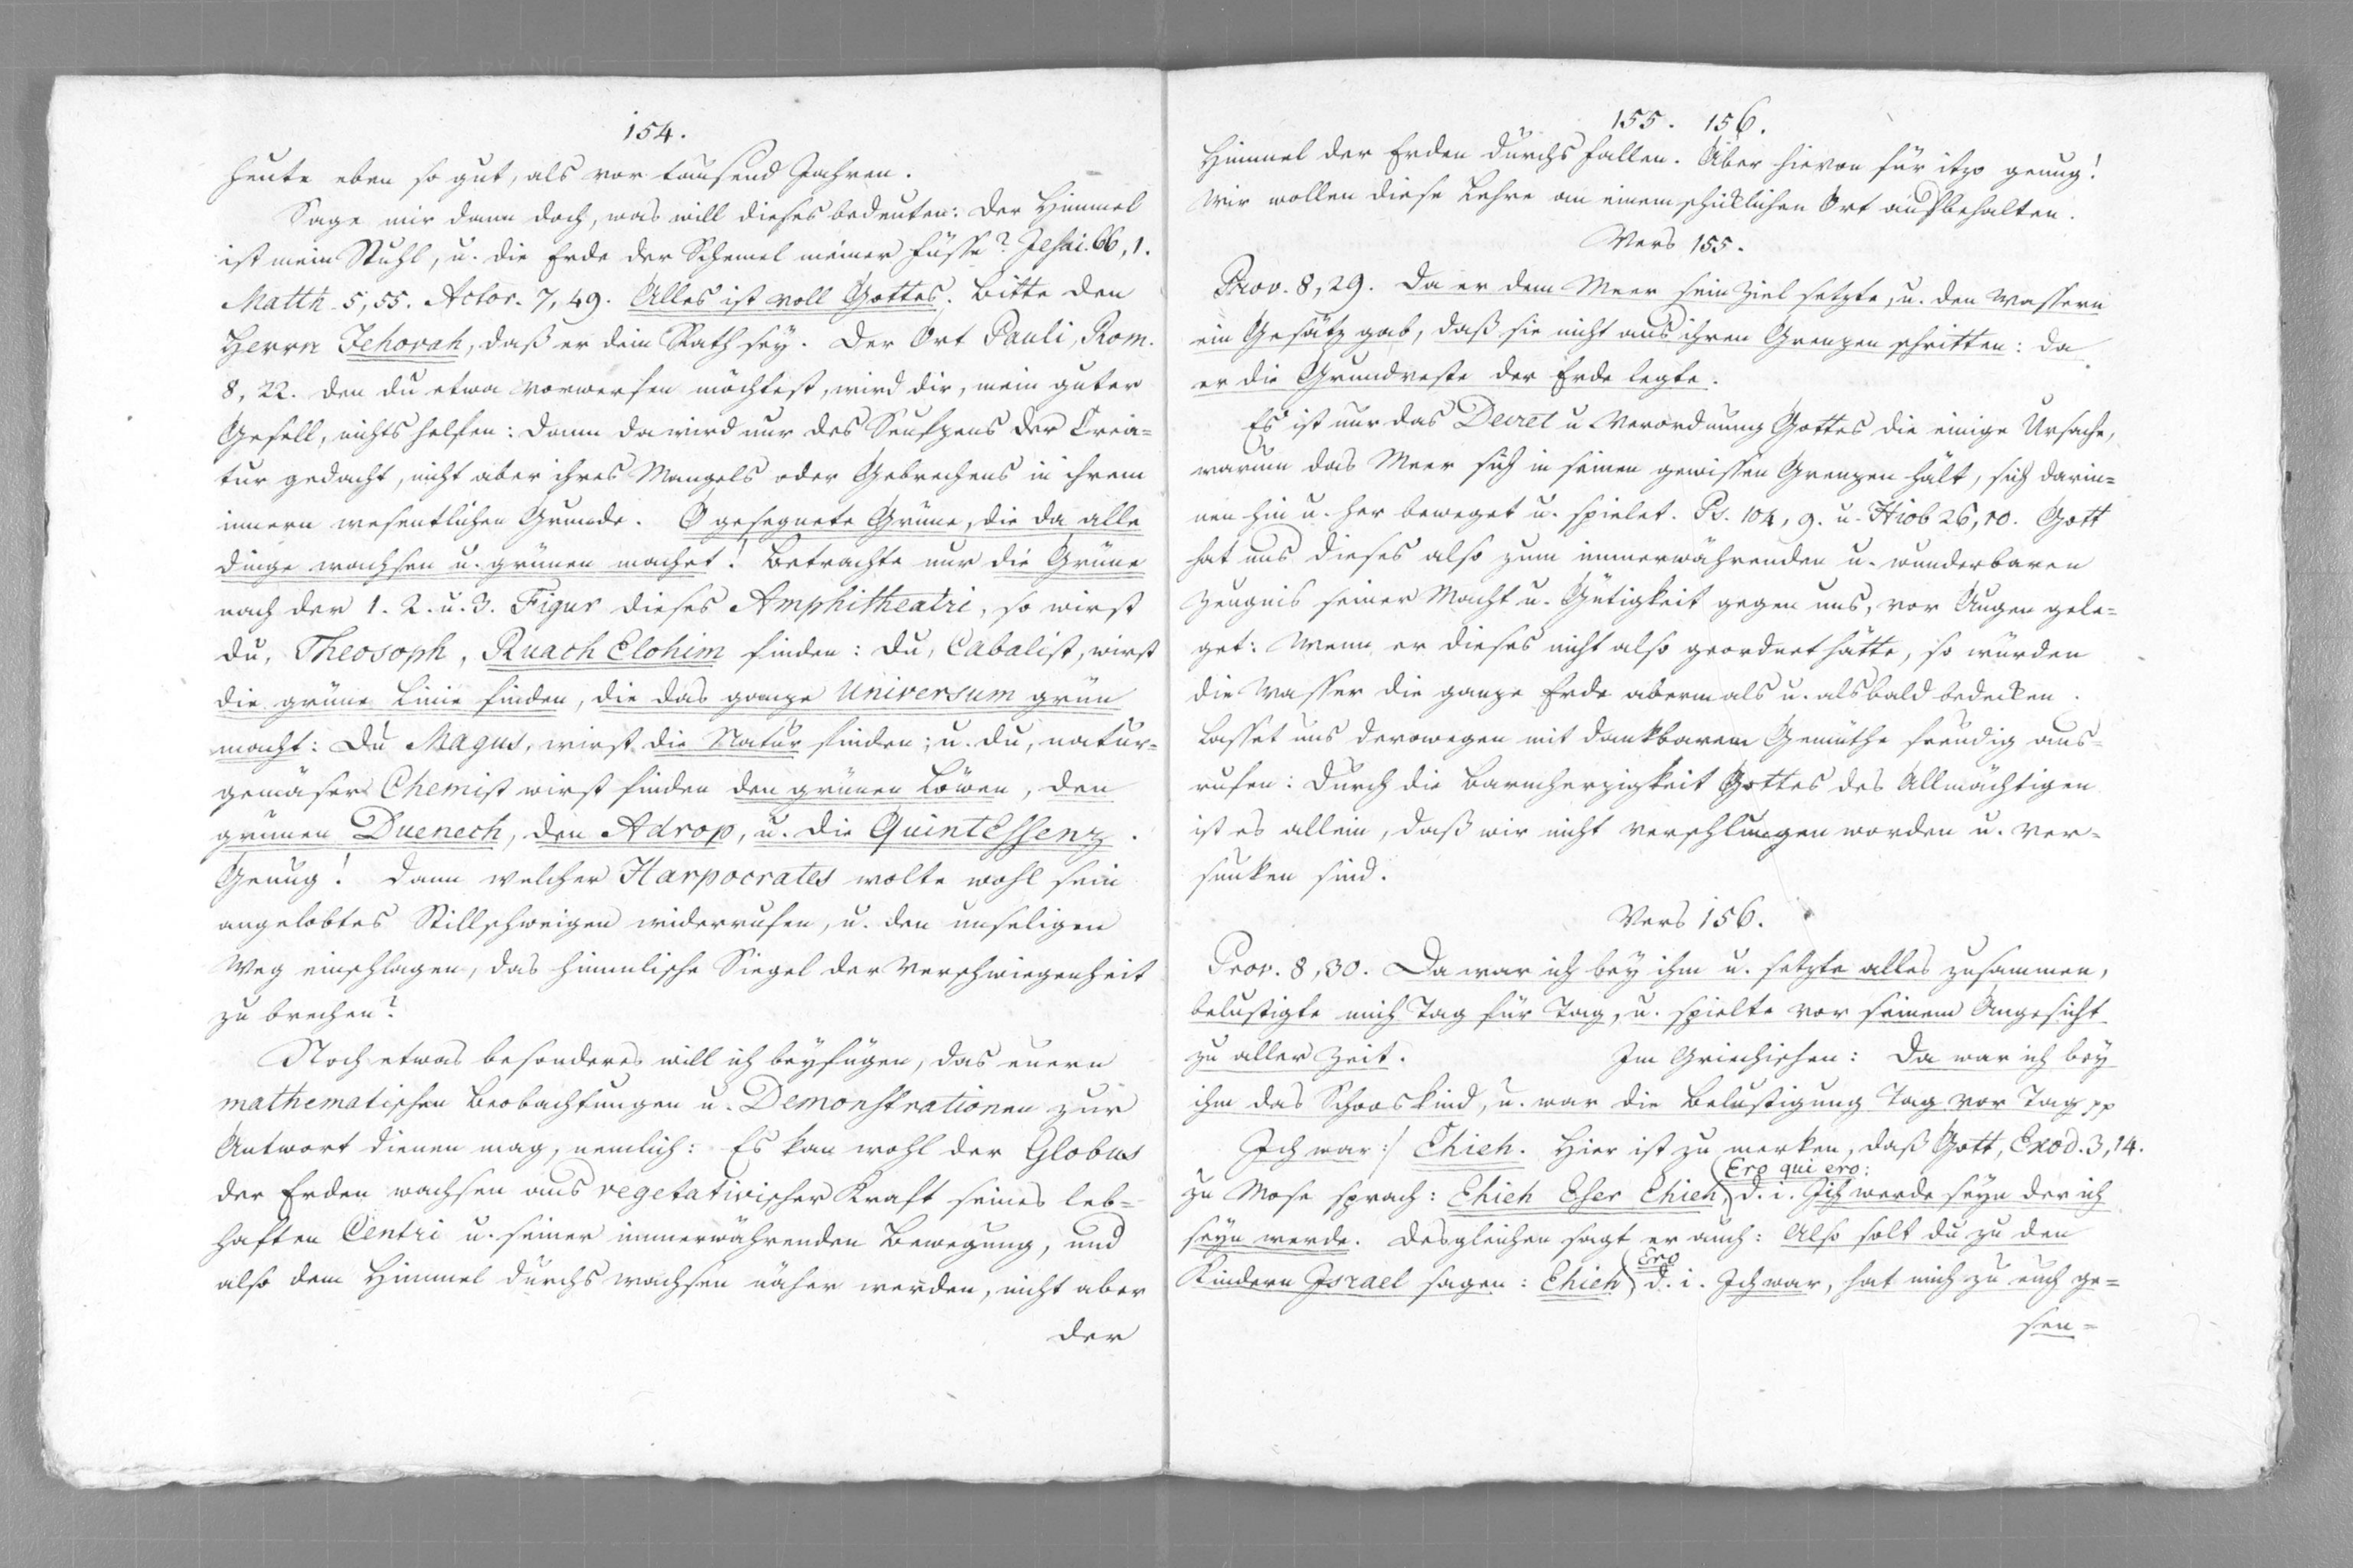 154.
heute eben so gut, als vor tausend Jahren.
Sage mir dann doch, was will dieses bedeuten: der Himmel
ist mein Stuhl, u. die Erde der Schemel meiner Füsse? Jesai. 66, 1.
Matth. 5, 55. Actor. 7, 49. Alles ist voll Gottes. Bitte den
Herrn Jehovah, daß er dein Rath sey. Der Ort Pauli, Rom.
8, 22. den du etwa vorwerfen möchtest, wird dir, mein guter
Gesell, nichts helfen: dann da wird nur des Seufzens der Crea=
tur gedacht, nicht aber ihres Mangels oder Gebrechens in ihrem
innern wesentlichen Grunde. O gesegnete Grüne, die da alle
dinge wachsen u. grünen machet! Betrachte nur die Grüne
nach der 1. 2. u. 3. Figur dieses Amphitheatri, so wirst
du, Theosoph, Ruach Elohim finden: du, Cabalist, wirst
die grüne Linie finden, die das ganze Universum grün
macht: Du Magus, wirst die Natur finden; u. du, natur=
gemäser Chemist wirst finden den grünen Löwen, den
grünen Duenech, den Adrop, u. die QuintEssenz.
Genug! dann welcher Harpocrates wolte wohl sein
angelobtes Stillschweigen widerrufen, u. den unseligen
Weg einschlagen, das himmlische Siegel der Verschwiegenheit
zu brechen?
Noch etwas besonderes will ich beyfügen, das euern
mathematischen Beobachtungen u. Demonstrationen zur
Antwort dienen mag, nemlich: Es kan wohl der Globus
der Erden wachsen aus vegetativischer Kraft seines leb=
haften Centri u. seiner immerwährenden Bewegung, und
also dem Himmel durchs wachsen näher werden, nicht aber
der
155. 156.
Himmel der Erden durchs fallen. Aber hievon für itzo genug!
Wir wollen diese Lehre an einem schicklichen Ort aufbehalten.
Vers 155.
Prov. 8, 29. Da er dem Meer sein Ziel setzte, u. den Wassern
ein Gesätz gab, daß sie nicht aus ihren Grenzen schritten: da
er die Grundveste der Erde legte.
Es ist nur das Decret u Verordnung Gottes die einige Ursache,
warum das Meer sich in seinen gewissen Grenzen hält, sich darin=
nen hin u. her beweget u. spielet. Ps. 104, 9. u. Hiob 26, 10. Gott
hat uns dieses also zum immerwährenden u. wunderbaren
Zeugnis seiner Macht u. Gütigkeit gegen uns, vor Augen gele=
get: Wenn er dieses nicht also geordnet hätte, so würden
die Wasser die ganze Erde abermals u. alsbald bedecken.
Lasset uns derowegen mit dankbarem Gemüthe freudig aus=
rufen: Durch die Barmherzigkeit Gottes des Allmächtigen
ist es allein, daß wir nicht verschlungen worden u. ver=
sunken sind.
Vers 156.
Prov. 8, 30. Da war ich bey ihm u. setzte alles zusammen,
belustigte mich Tag für Tag, u. spielte vor seinem Angesicht
zu aller Zeit. Im Griechischen: Da war ich bey
ihm das Schooskind, u. war die Belustigung Tag vor Tag pp
Ich war :/ Ehieh. Hier ist zu merken, daß Gott, Exod. 3, 14.
Ero qui ero:
zu Mose sprach: Ehieh Eser Ehieh, d. i. Ich werde seyn der ich
seyn werde. Desgleichen sagt er auch: Also solt du zu den
Ero
Kindern Israel sagen: Ehieh, d. i. Ich war, hat mich zu euch ge=
sen=